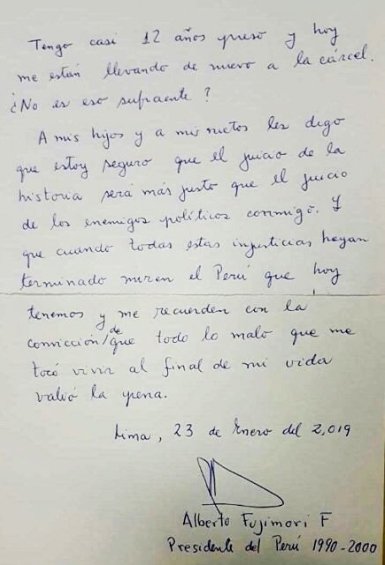 Tengo casi 12 años preso y hoy
me están llevando de nuevo a la cárcel.
¿No es eso suficiente?
A mis hijos y a mis nietos les digo
que estoy seguro que el juicio de la
historia será más justo que el juicio
de los enemigos políticos conmigo. Y
que cuando todas estas injusticias hayan
terminado miren el Perú que hoy
tenemos y me recuerden con la
convicción/de que todo lo malo que me
tocó vivir al final de mi vida
valió la pena.
Lima, 23 de Enero del 2,019
Alberto Fujimori F
Presidente del Perú 1990-2000